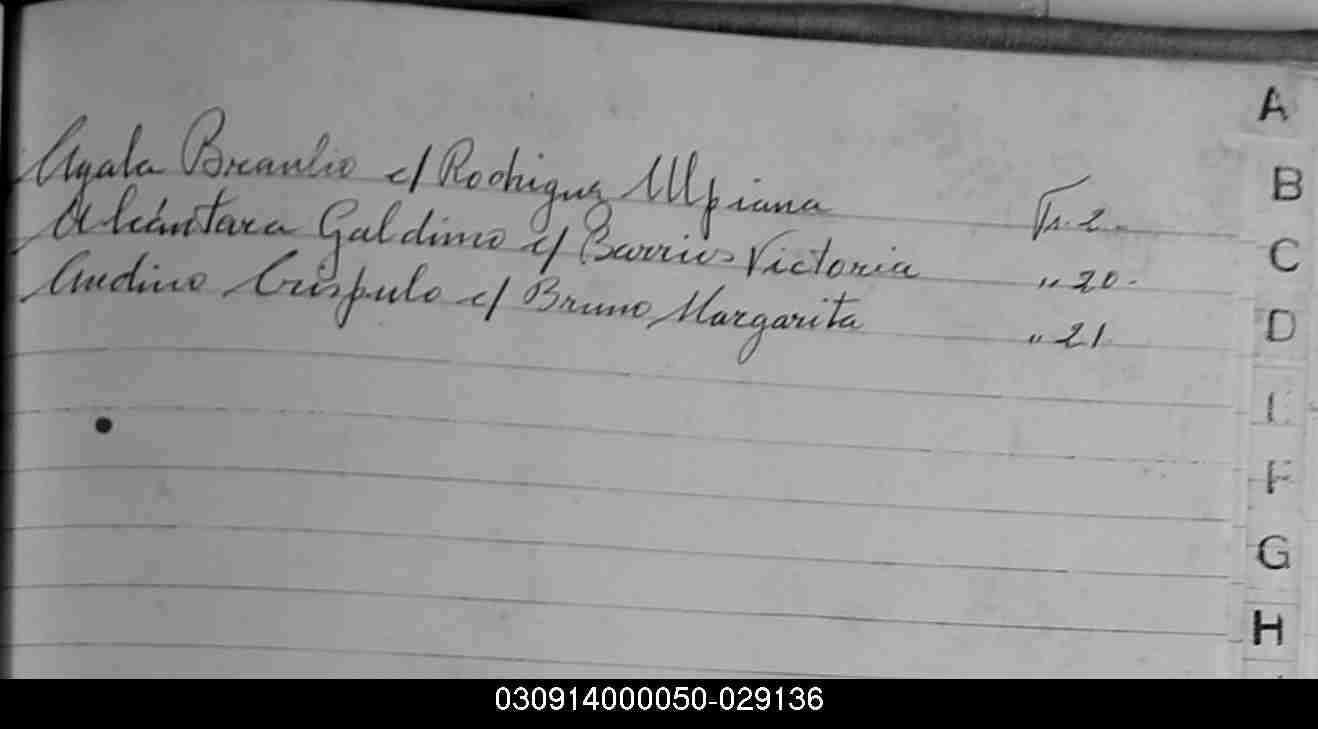 Ayala Braulio c/ Rodriguez Ulpiana Fs. 2.
Alcántara Galdino c/ Barrios Victoria " 20.
Andino Crispulo c/ Bruno Margarita " 21.
A
B
C
D
E
F
G
H
030914000050-029136